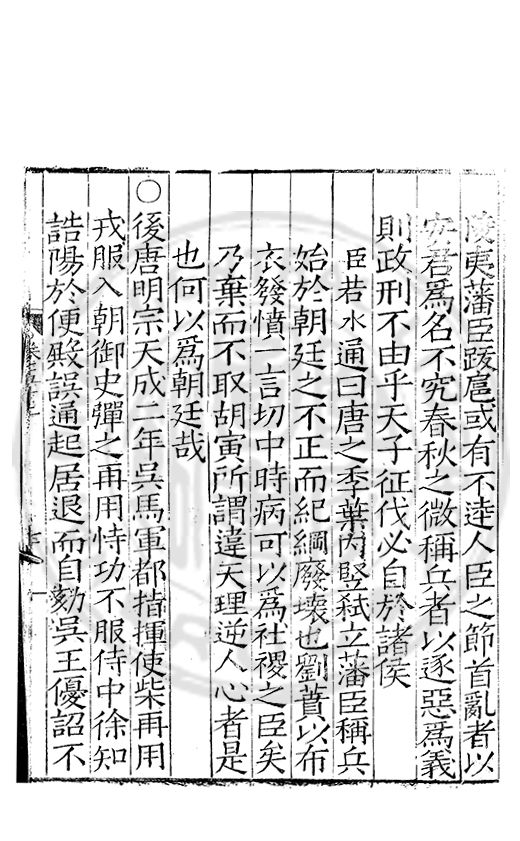 陵夷藩臣跋扈或有不逹人臣之節首亂者以
安君爲名不究春秋之微稱兵者以逐惡爲義
則政刑不由乎天子征伐必自於諸侯
臣若水通曰唐之季葉内竪弑立藩臣稱兵
始於朝廷之不正而紀綱廢壞也劉蕡以布
衣發憤一言切中時病可以爲社稷之臣矣
乃棄而不取胡寅所謂違天理逆人心者是
也何以爲朝廷哉
○後唐明宗天成二年吳馬軍都指揮使柴再用
戎服入朝御史彈之再用恃功不服侍中徐知
誥陽於便殿誤通起居退而自劾吳王優詔不